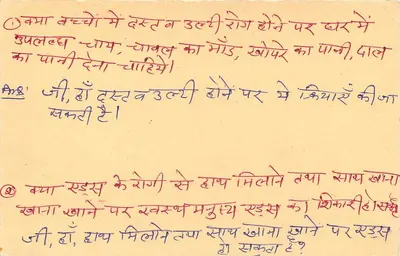 ① क्या बच्चों में दस्त व उल्टी रोग होने पर घर में
उपलब्ध चाय, चावल का माँड, खोपरे का पानी, दाल
का पानी देना चाहिये।
Ans: जी, हाँ दस्त व उल्टी होने पर ये क्रियाएँ की जा
सकती है।
② क्या एड्स के रोगी से हाथ मिलाने तथा साथ खाना
खाना खाने पर स्वस्थ मनुष्य एड्स का शिकारी हो
जी, हाँ, हाथ मिलाने तथा साथ खाना खाने पर एड्स
हो सकता है?